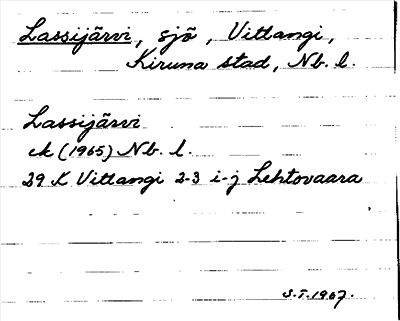 Lassijärvi, sjö, Vittangi,
Kiruna stad, Nb. l.
Lassijärvi
ek (1965) Nb. l.
29 K Vittangi 2-3 i-j Lehtovaara
S.T. 1967.